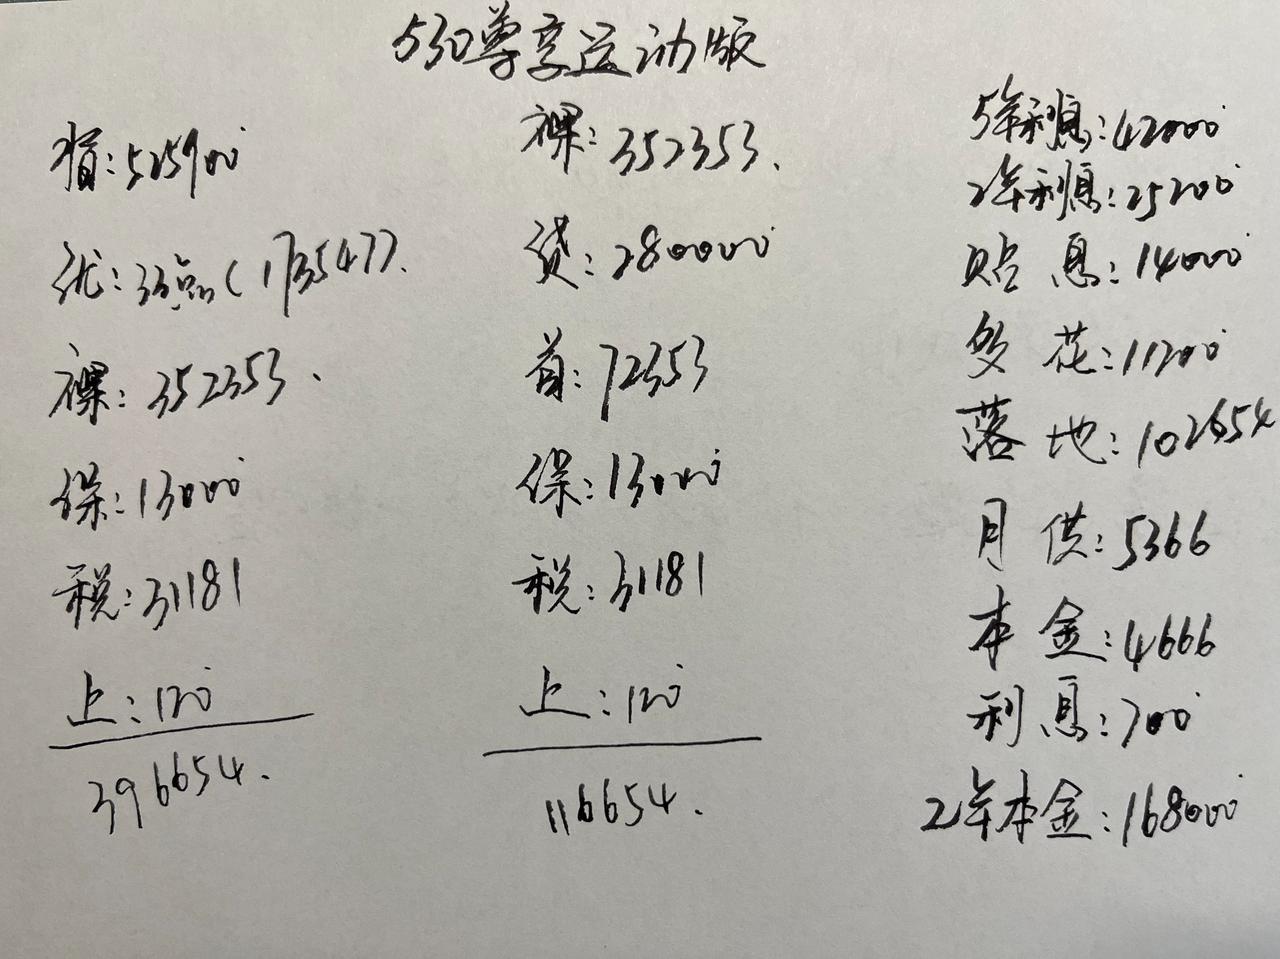 530尊享运动版
指:525900
优:33点(173547).
裸:352353.
保:13000
税:31181
上:120
396654.
裸:352353.
贷:280000
首:72353
保:13000
税:31181
上:120
116654.
5年利息:42000
2年利息:25200
贴息:14000
多花:11200
落地:102654
月供:5366
本金:4666
利息:700
2年本金:168000